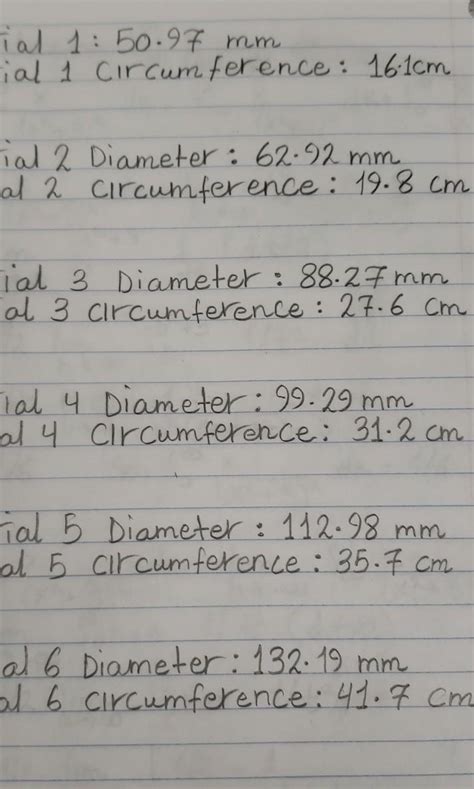 ial 1: 50.97 mm
ial 1 Circumference: 16.1cm
ial 2 Diameter: 62.92 mm
al 2 circumference: 19.8 cm
ial 3 Diameter: 88.27 mm
al 3 circumference: 27.6 cm
ial 4 Diameter: 99.29 mm
al 4 Circumference: 31.2 cm
ial 5 Diameter: 112.98 mm
al 5 circumference: 35.7 cm
al 6 Diameter: 132.19 mm
al 6 circumference: 41.7 cm